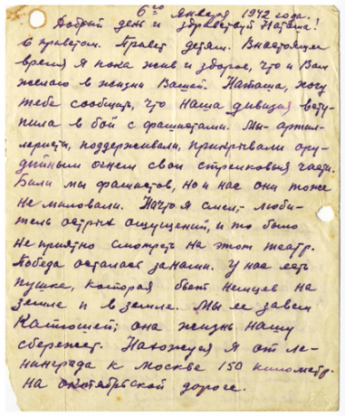 6го января 1942 года.
Добрый день и здравствуй Наташа!
с приветом. Привет детям. В настоящее
время я пока жив и здоров, что и Вам
желаю в жизни Вашей. Наташа, хочу
тебе сообщить, что наша дивизия всту-
пила в бой с фашистами. Мы-артил-
леристы, поддерживали, прикрывали ору-
дийным огнем свои стрелковые части.
Били мы фашистов, но и нас они тоже
не миловали. На что я смел, люби-
тель острых ощущений, и то было
не приятно смотреть на этот театр.
Победа осталась за нами. У нас есть
пушка, которая бьет немцев на
земле и в земле. Мы ее зовем
Катюшей; она жизнь нашу
сбережет. Нахожуся я от Ле-
нинграда к Москве 150 километр.
на октябрьской дороге.